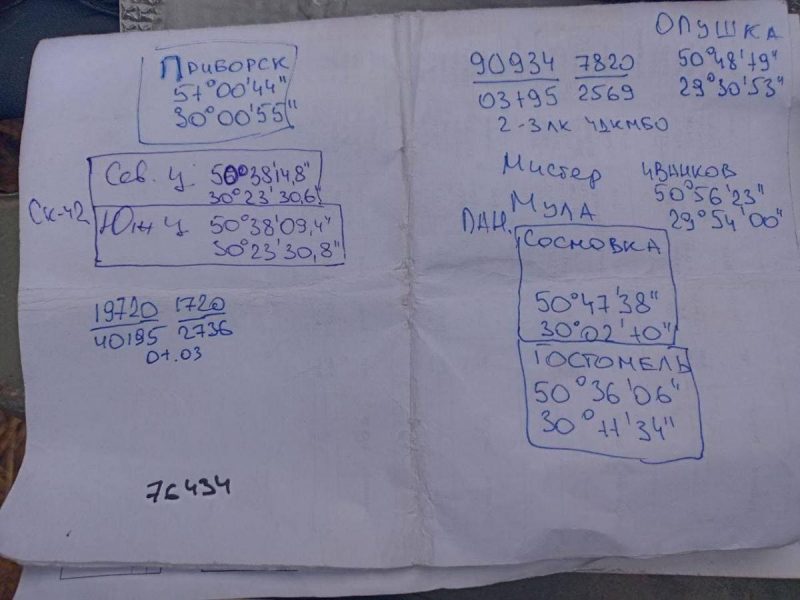 Приборск
51°00'44"
30°00'55"
Сев. ц. 50°38'14,8"
30°23'30,6"
Ск-42
Южн ц 50°38'09,4"
30°23'30,8"
19720 1720
40195 2736
01.03
76434
Опушка
50°48'19"
29°30'53"
90934 7820
03795 2569
Мистер Иванков
50°56'23"
29°54'00"
Мула
Сосновка
50°47'38"
30°02'10"
Гостомель
50°36'06"
30°11'34"